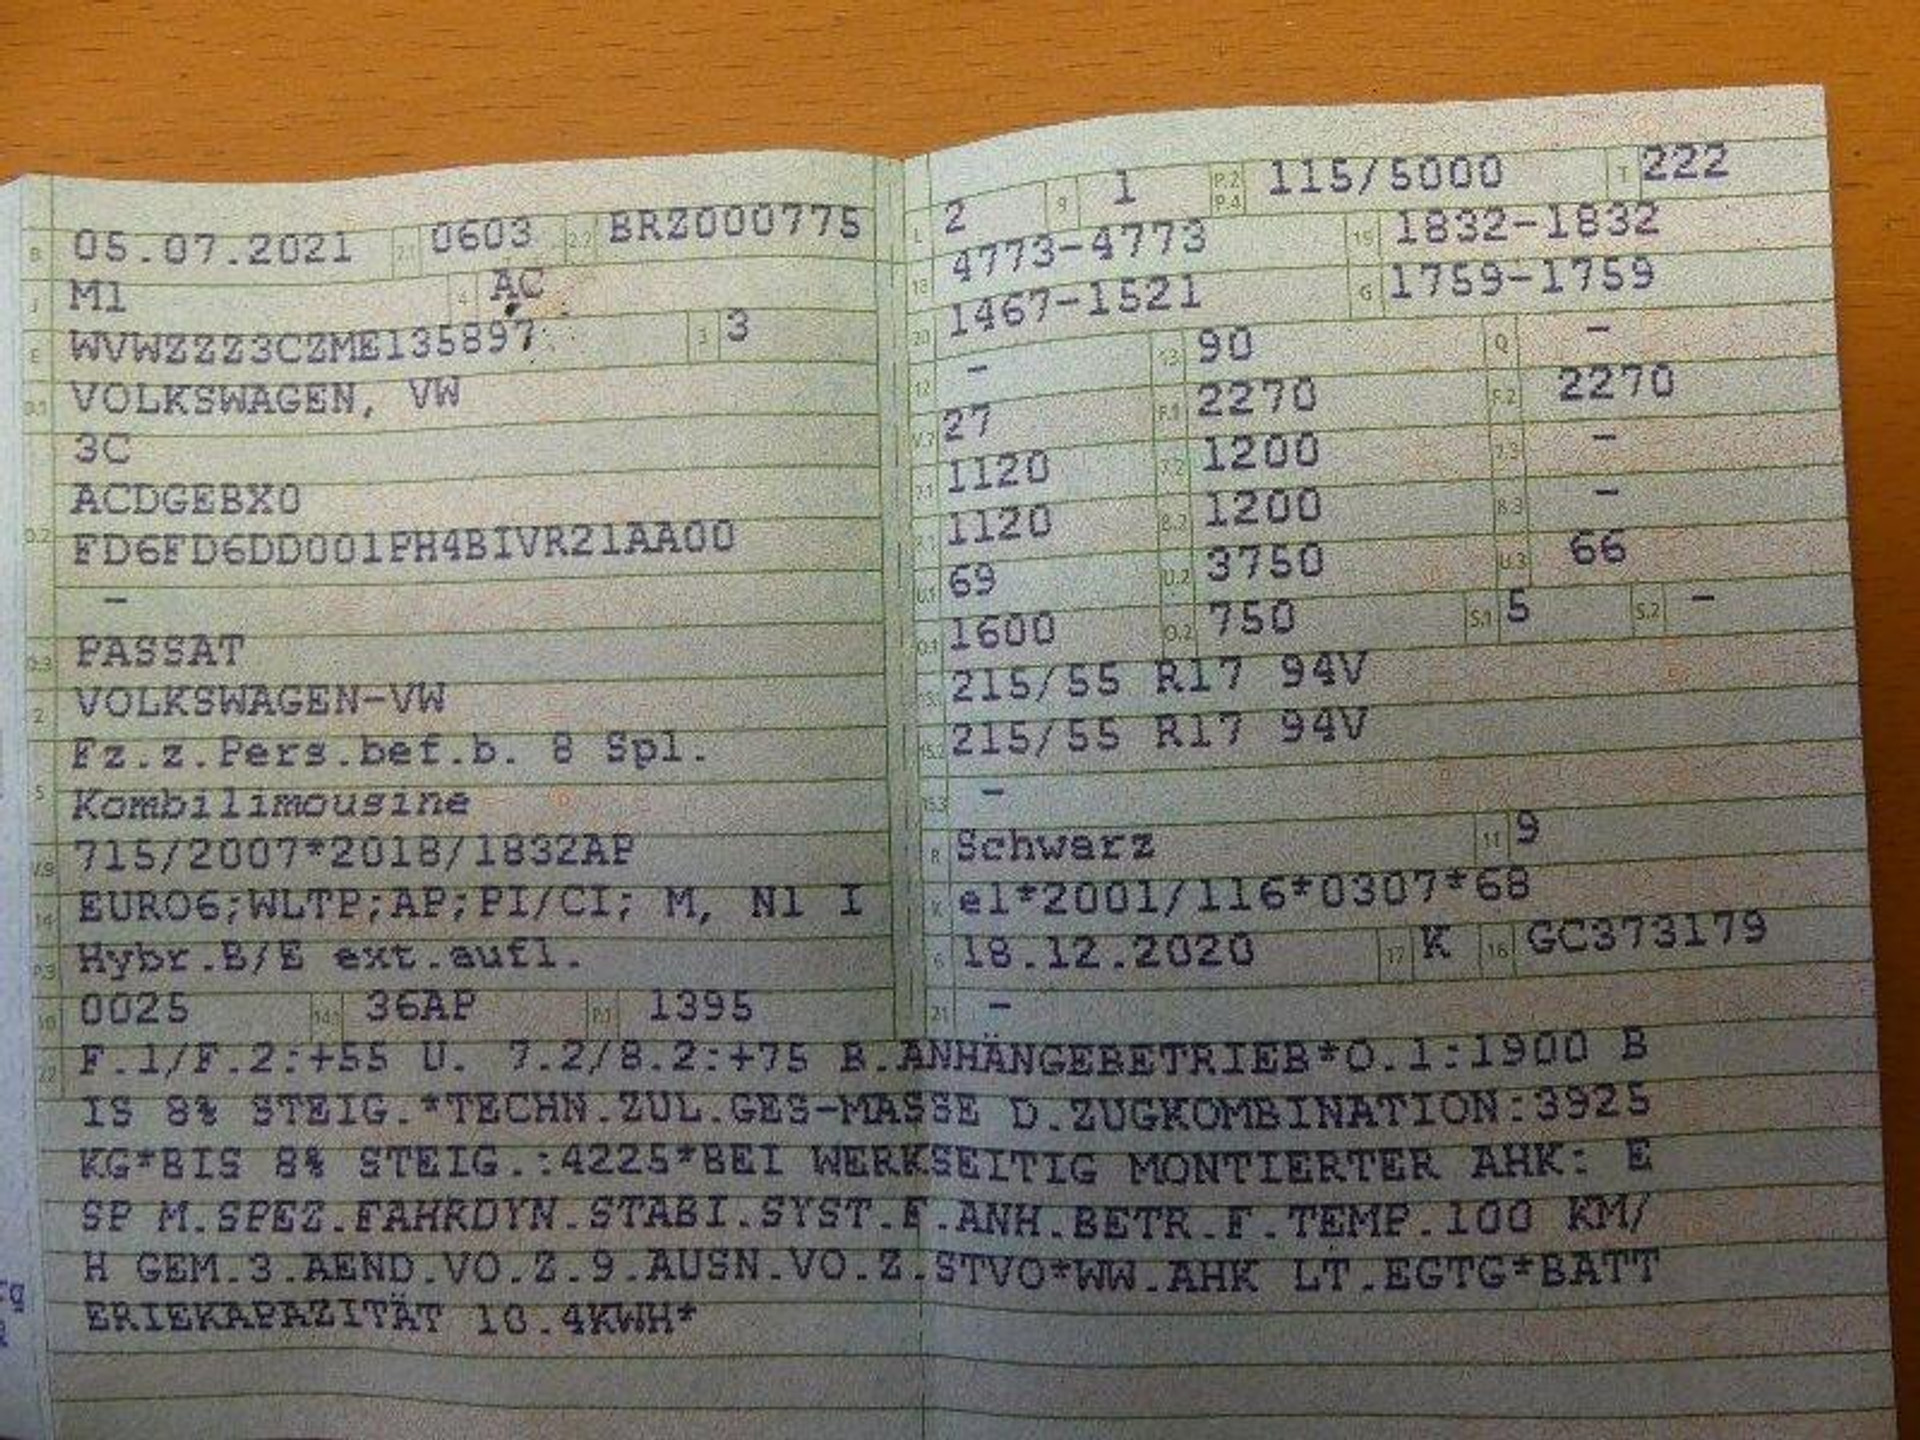 B 05.07.2021 2.1 0603 2.2 BRZ000775
J M1 4 AC
E WVWZZZ3CZME135897 3 3
D.1 VOLKSWAGEN, VW
3C
ACDGEBX0
D.2 FD6FD6DD001FH4BIVR21AA00
-
D.3 PASSAT
2 VOLKSWAGEN-VW
Fz.z.Pers.bef.b. 8 Spl.
5 Kombilimousine
V.9 715/2007*2018/1832AP
14 EURO6;WLTP;AP;PI/CI; M, N1 I
P.3 Hybr.B/E ext.aufl.
10 0025 14.1 36AP P.1 1395
L 2 9 1 P.2 P.4 115/5000 T 222
18 4773-4773 19 1832-1832
20 1467-1521 G 1759-1759
12 - 13 90 Q -
V.7 27 F.1 2270 F.2 2270
7.1 1120 7.2 1200 7.3 -
8.1 1120 8.2 1200 8.3 -
U.1 69 U.2 3750 U.3 66
O.1 1600 O.2 750 S.1 5 S.2 -
15.1 215/55 R17 94V
15.2 215/55 R17 94V
15.3 -
R Schwarz 11 9
K e1*2001/116*0307*68
6 18.12.2020 17 K 16 GC373179
21 -
22 F.1/F.2:+55 U. 7.2/8.2:+75 B.ANHÄNGEBETRIEB*O.1:1900 B
IS 8% STEIG.*TECHN.ZUL.GES-MASSE D.ZUGKOMBINATION:3925
KG*BIS 8% STEIG.:4225*BEI WERKSEITIG MONTIERTER AHK: E
SP M.SPEZ.FAHRDYN.STABI.SYST.F.ANH.BETR.F.TEMP.100 KM/
H GEM.3.AEND.VO.Z.9.AUSN.VO.Z.STVO*WW.AHK LT.EGTG*BATT
ERIEKAPAZITÄT 10.4KWH*